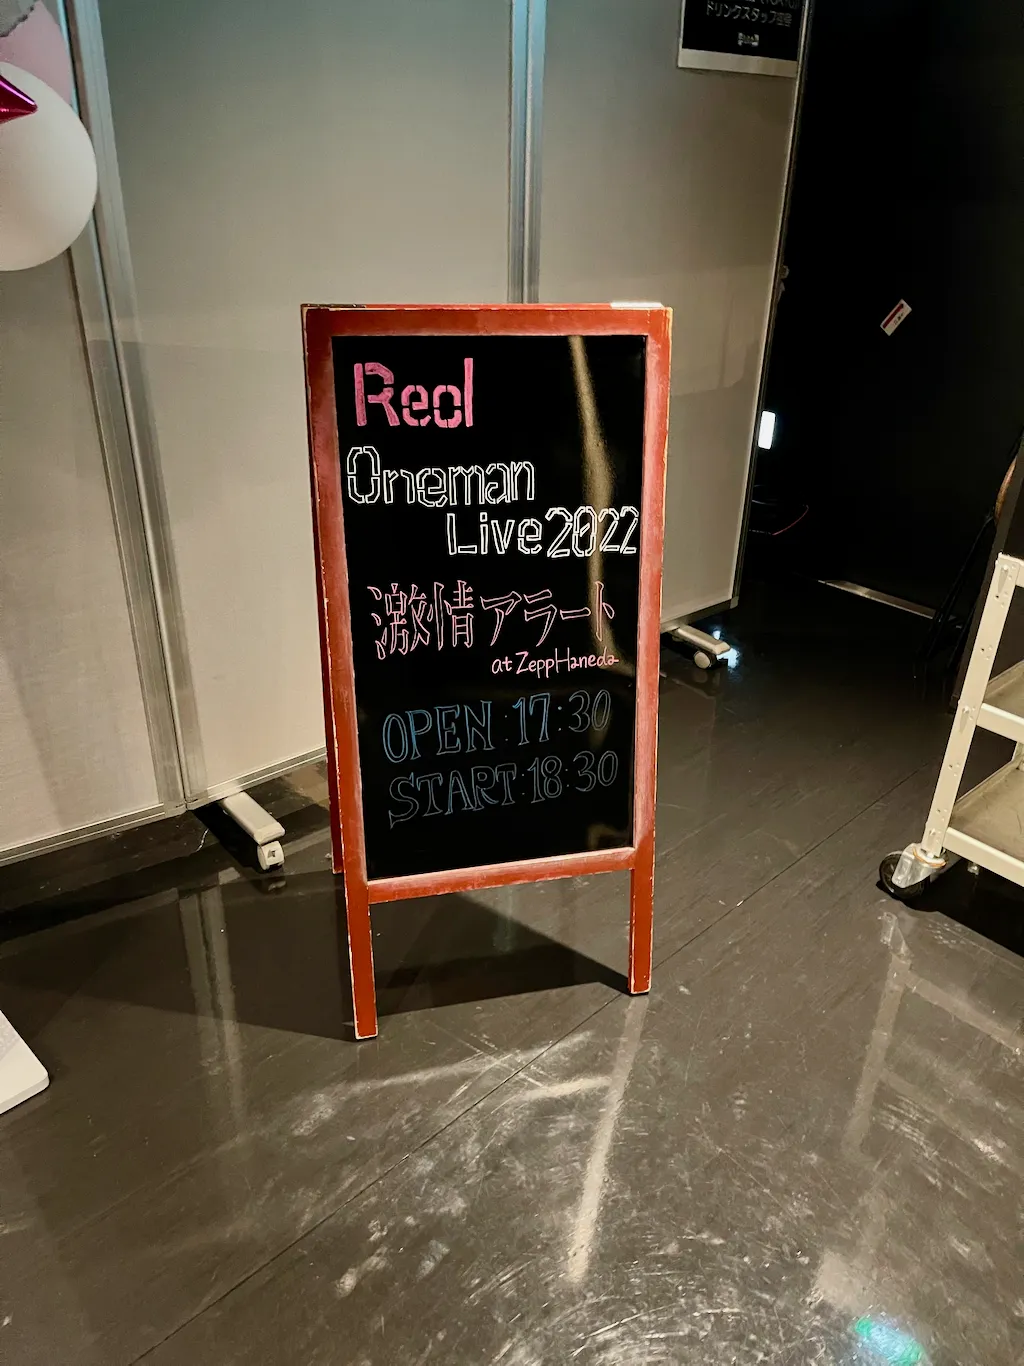 ドリンクスタッフ
Reol
Oneman
Live2022
激情アラート
at ZeppHaneda
OPEN:17:30
START:18:30